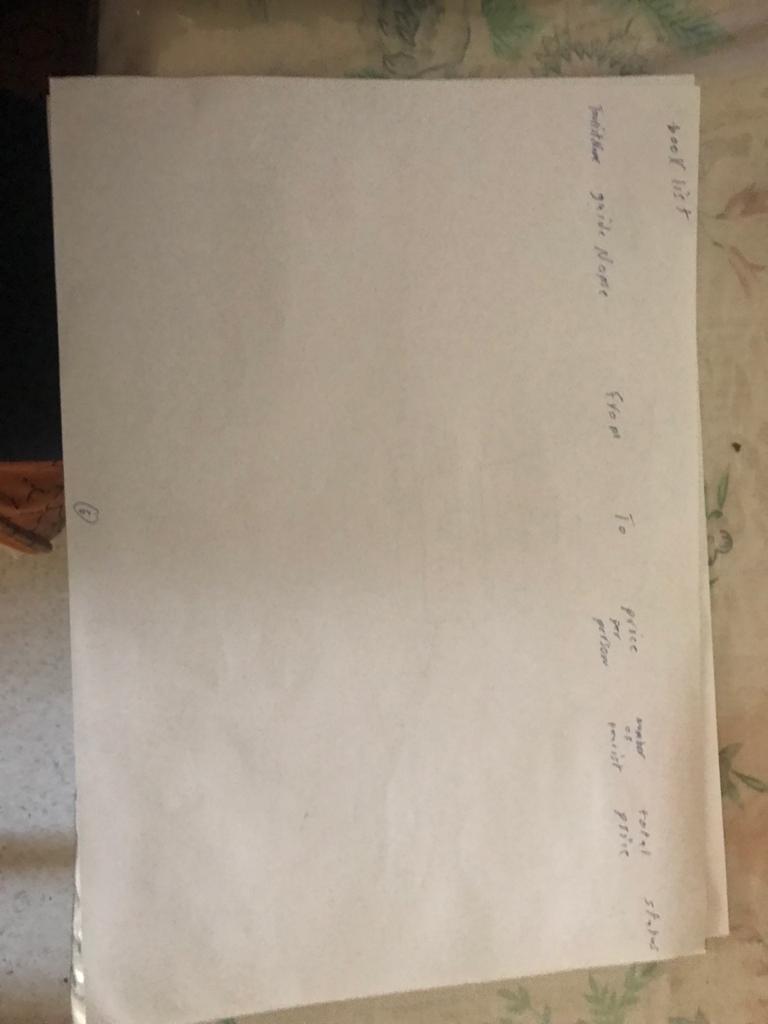 book list
Tourist Name guide Name From To price per person number of tourist total price status
6